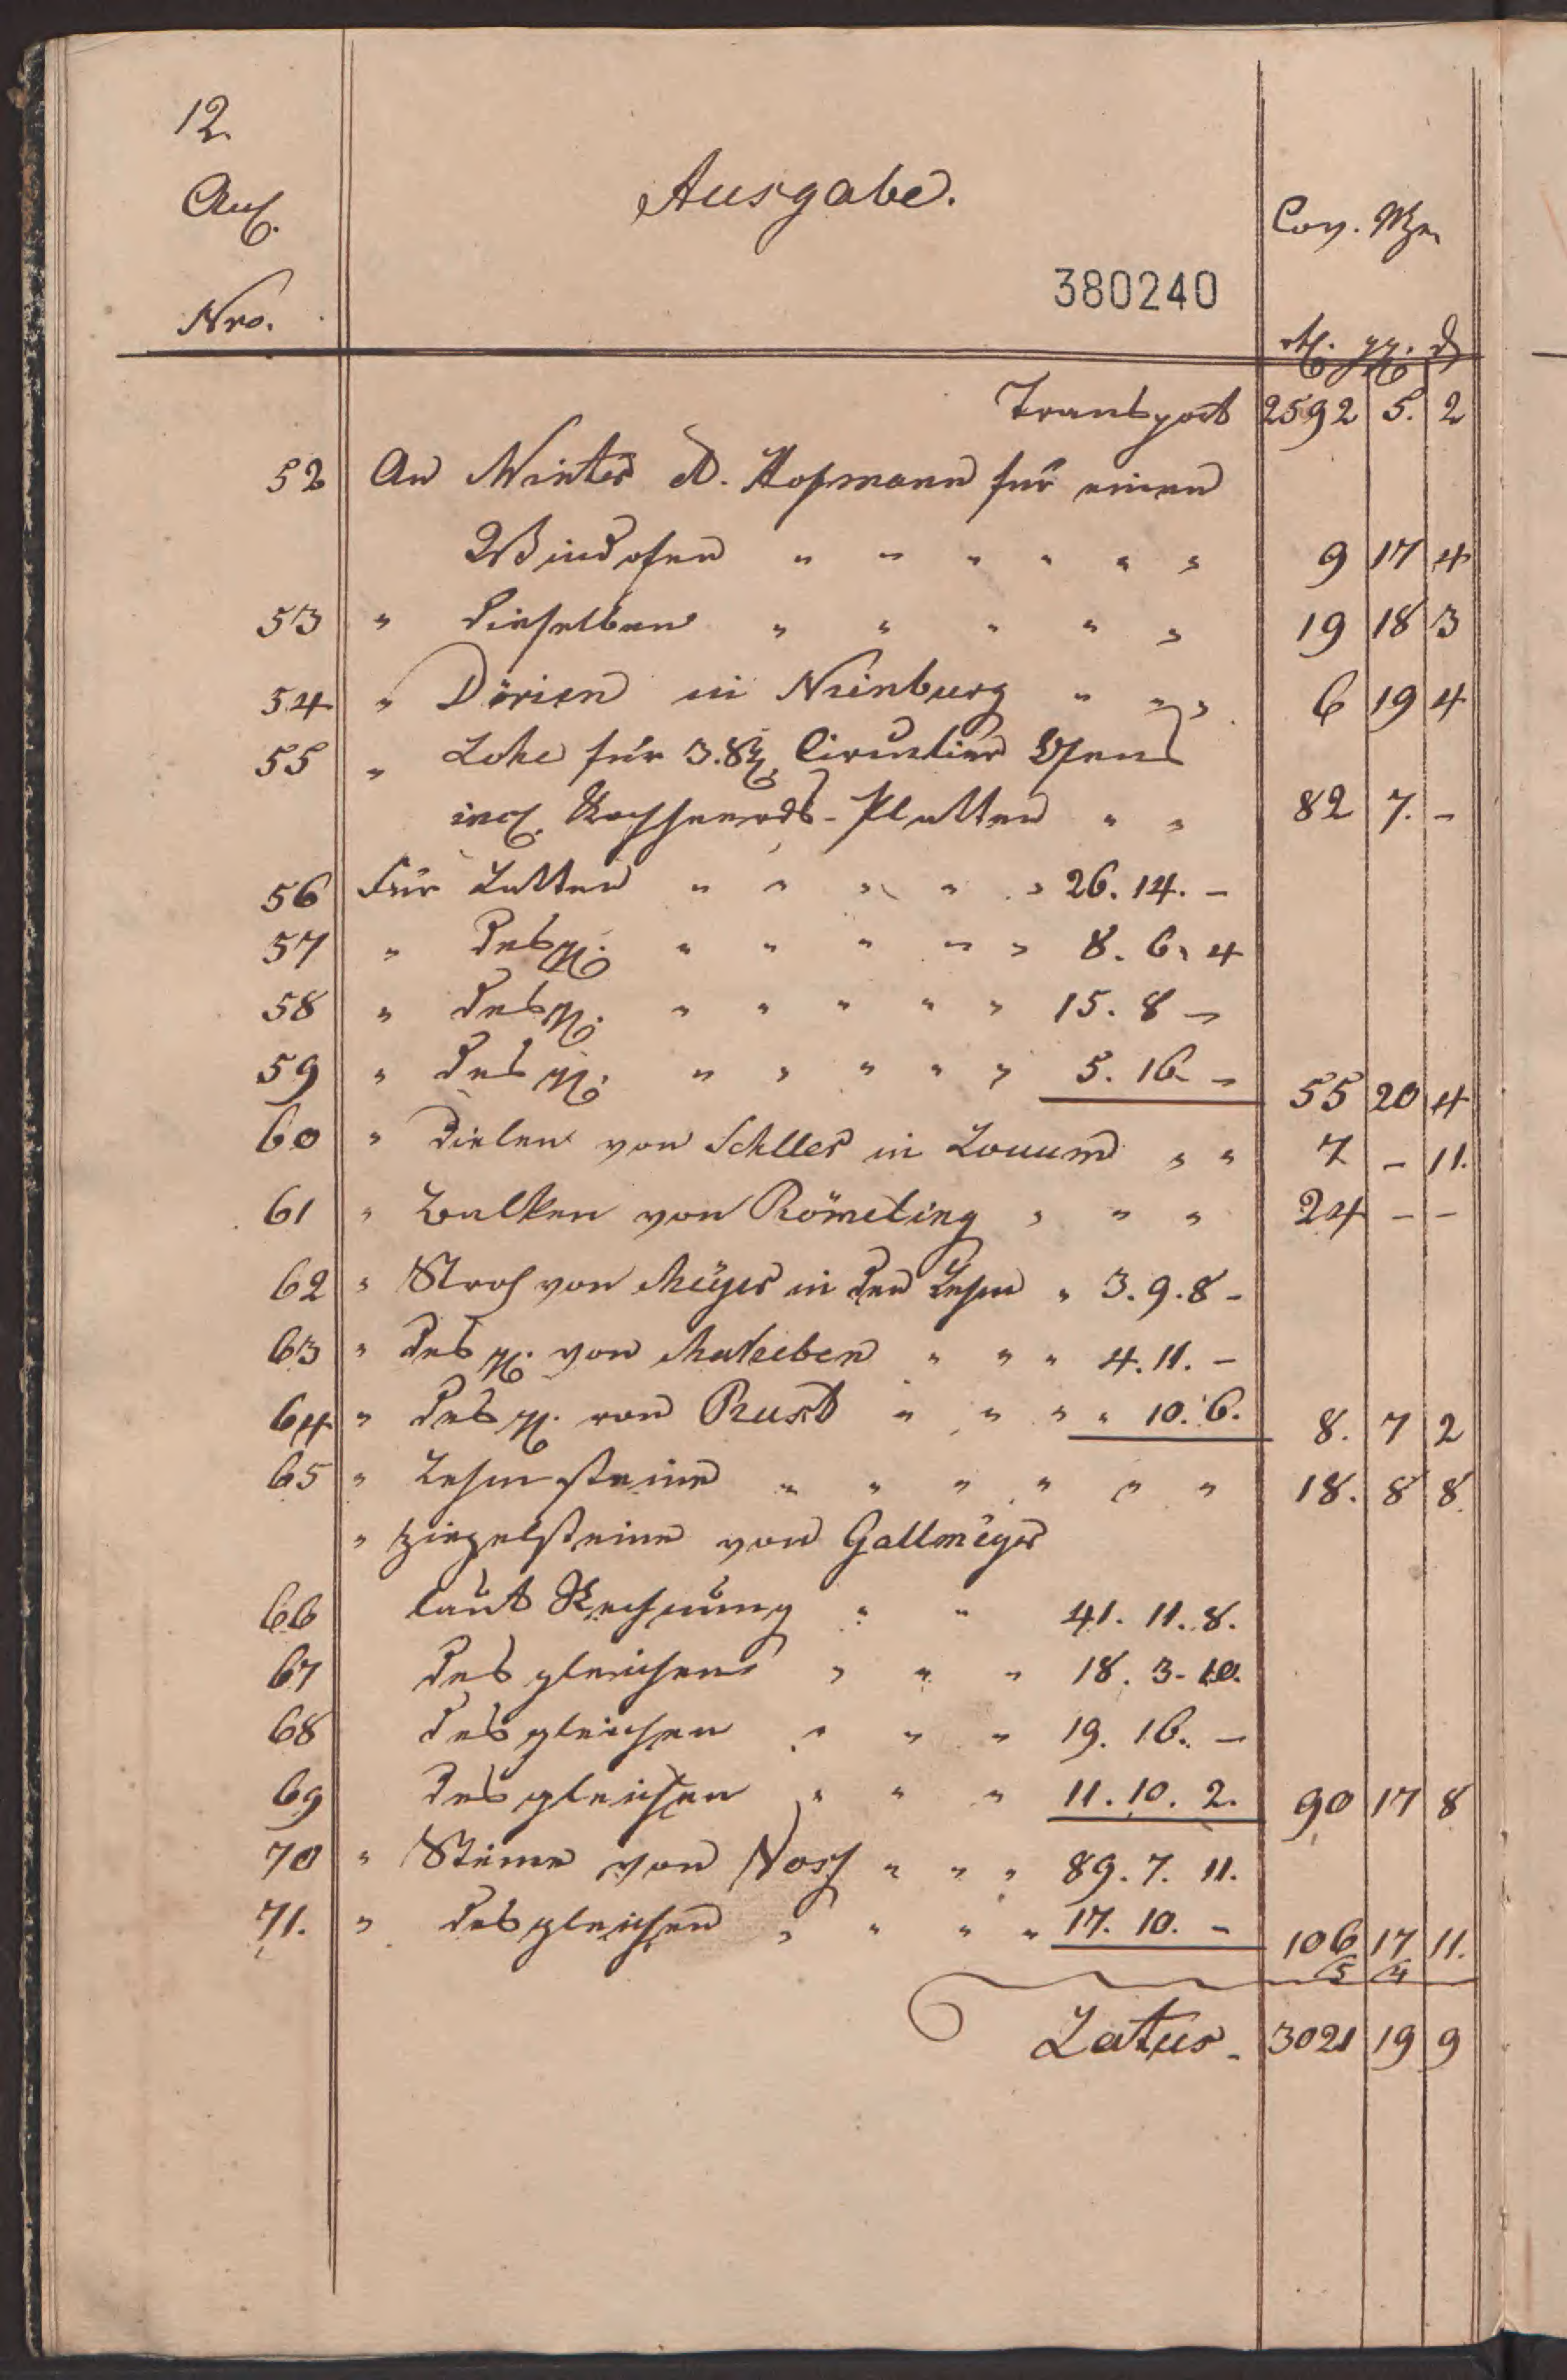 12.
Ausgabe.
Anl.
Nro.
Cov. Mze
380240
rthl. ggr. d
Transport 2592 5. 2
52 An Winter & Hofmann für einen
Windofen " " " " " " 9 17 4
53 " dieselben " " " " " 19 18 3
54 " Dörien in Nienburg " " " 6 19 4
55 " Lohe für 3. Ofens
incl. Kochheerds-Platten " " 82 7. -
56 Für Latten " " " " " 26. 14. -
57 " desgl. " " " " " 8. 6. 4
58 " desgl. " " " " " 15. 8 -
59 " desgl. " " " " " 5. 16. - 55 20 4
60 " Dielen von in Loccum " " 7 - 11.
61 " Balken von Römeling " " " 24 - -
62 " Stroh von Meyer in den Lehm " 3. 9. 8 -
63 " desgl. von " " " 4. 11. -
64 " desgl. von Rust " " " " 10. 6. 8. 7 2
65 " Lehmsteine " " " " " " 18. 8 8
" Ziegelsteine von Gallmeyer
66 laut Rechnung " " 41. 11. 8.
67 desgleichen " " " 18. 3. 10.
68 desgleichen " " " 19. 16. -
69 desgleichen " " " 11. 10. 2. 90 17 8
70 " Steine von " " " 89. 7. 11.
71. " desgleichen " " " " 17. 10. - 106 17 11.
5 4
Latus. 3021 19 9